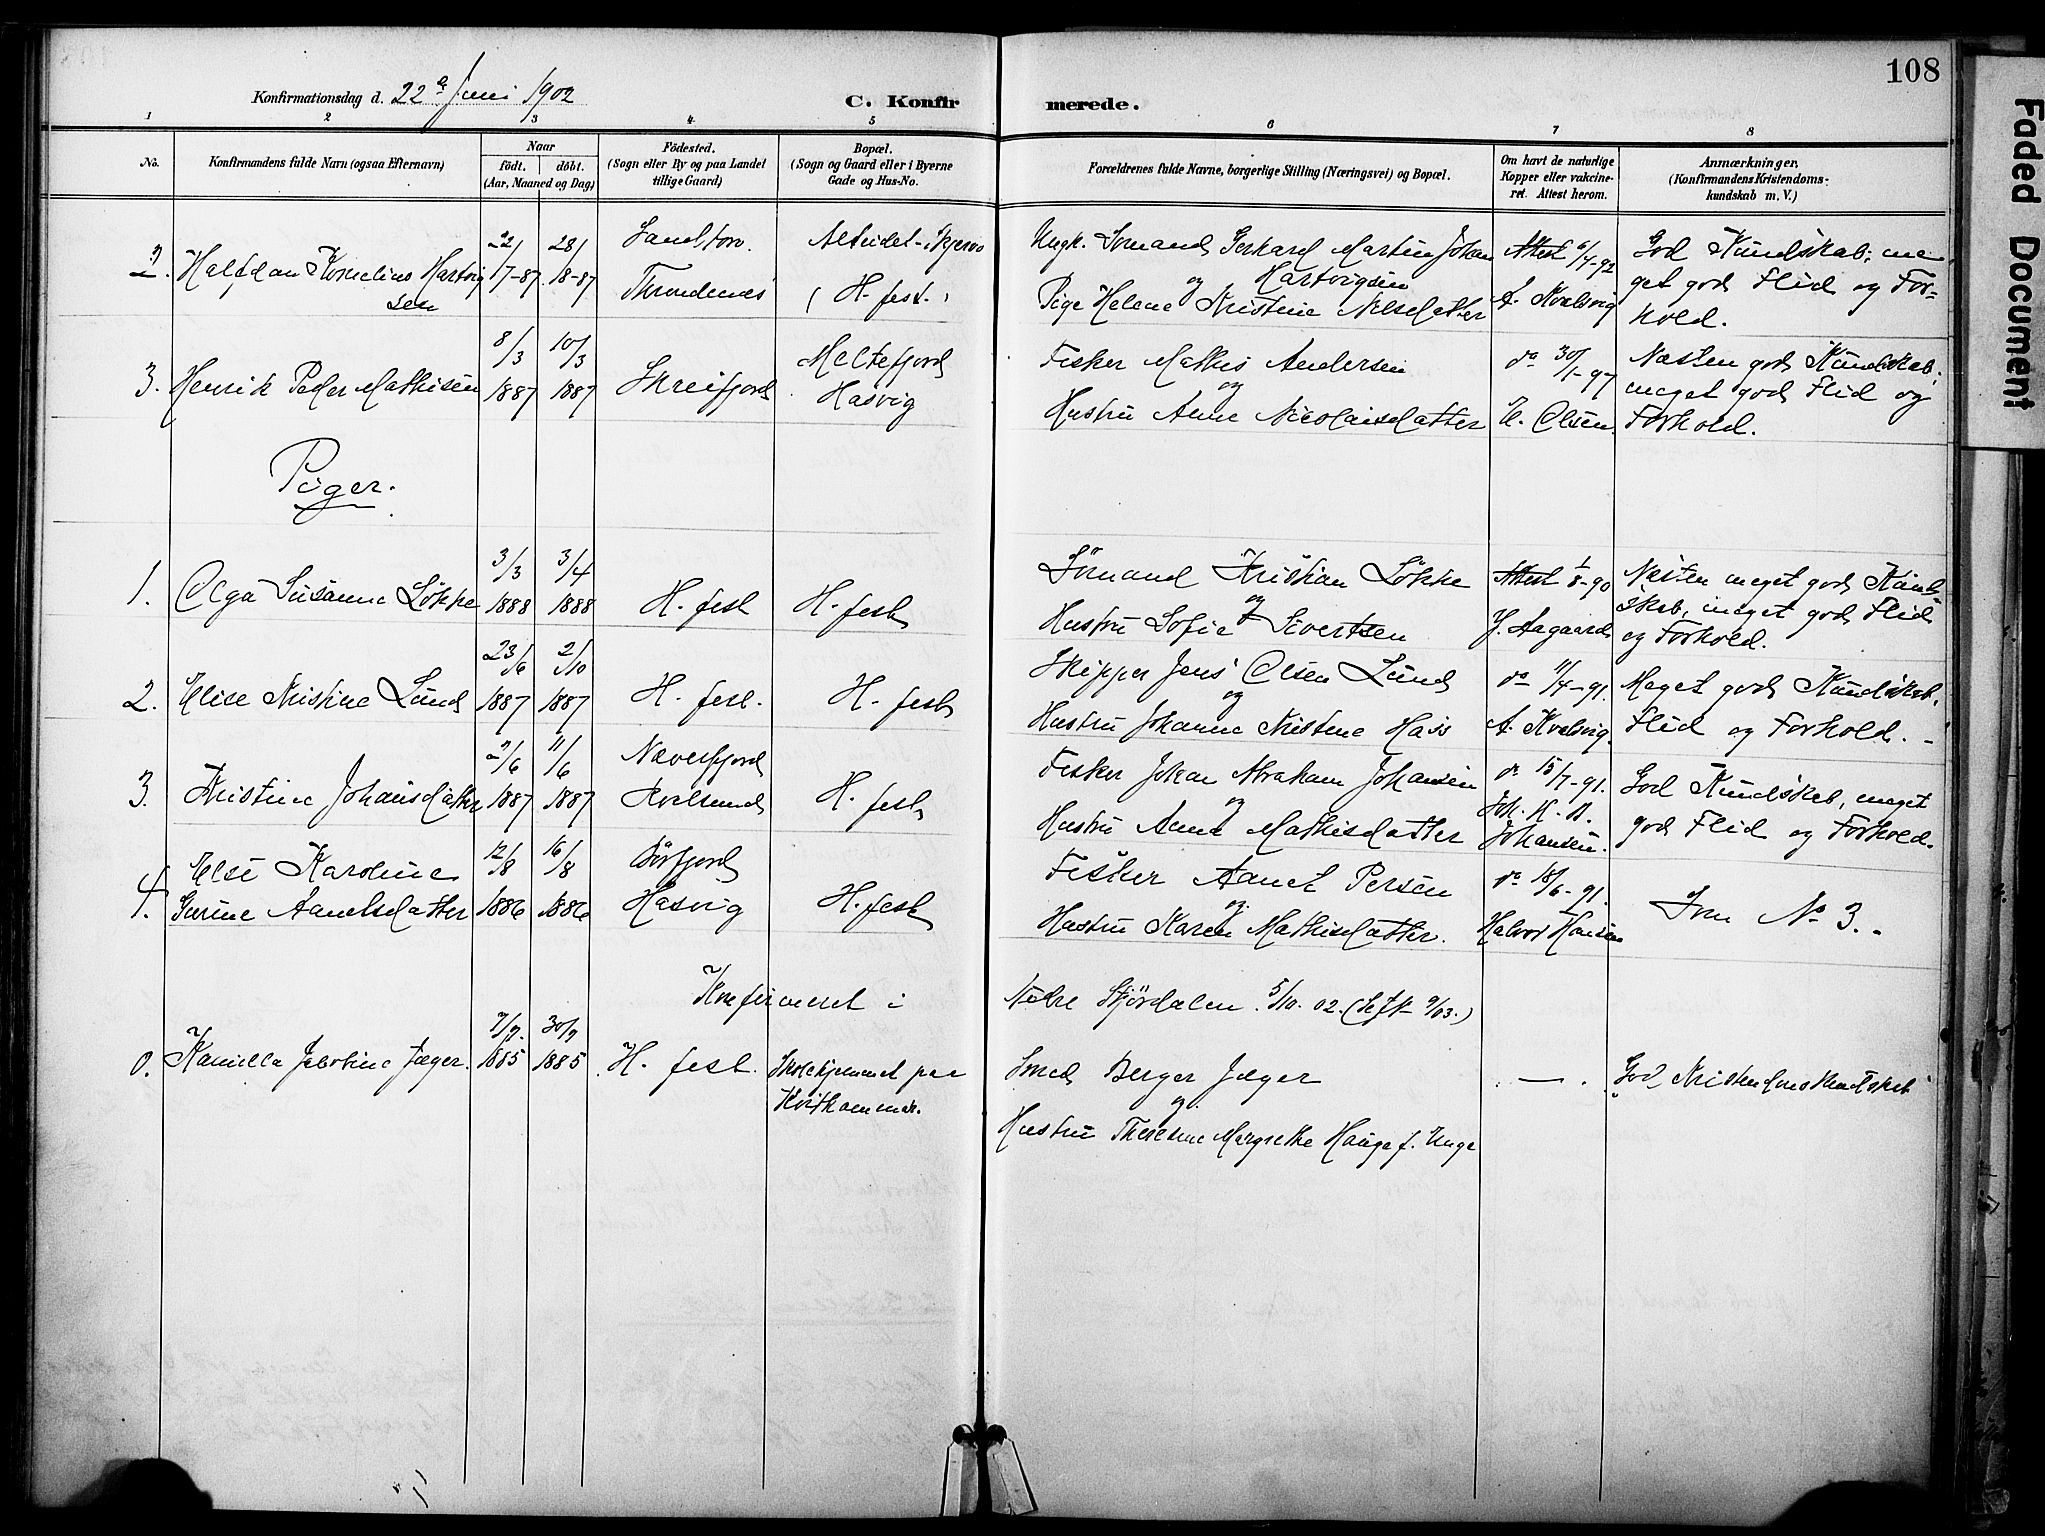 108
Faded Document
Konfirmationsdag d. 22de Juni 1902
C. Konfirmerede.
1 2 3 4 5 6 7 8
No.
Konfirmandens fulde Navn (ogsaa Efternavn)
Naar
födt. döbt.
(Aar, Maaned og Dag)
Födested.
(Sogn eller By og paa Landet
tillige Gaard)
Bopæl.
(Sogn og Gaard eller i Byerne
Gade og Hus-No.
Forældrenes fulde Navne, borgerlige Stilling (Næringsvei) og Bopæl.
Om havt de naturlige
Kopper eller vakcine-
ret. Attest herom.
Anmærkninger.
(Konfirmandens Kristendoms-
kundskab m. V.)
2. Halfdan Kornelius Hartvig
sen
22/ 28/
17-87 18-87
Sandtorv.
Throndenes
Alteidet
(H-fest.)
Ungk. Sömand Gerhard Martin Johan
og Hartvigsen
Pige Helene Kristine Nilsdatter
Attest 6/4-92
A. Kvalsvig
God Kundskab; me
get god Flid og For-
hold.
3. Henrik Peder Mathisen
8/3 10/3
1887 1887
Skreifjord
Meltefjord
Hasvig
Fisker Mathis Andersen
og
Hustru Anne Nicolaisdatter
do 30/1-97
E. Olsen.
Næsten god Kundskab,
meget god Flid og
Forhold.
Piger.
1. Olga Susanne Lökke
3/3 3/4
1888 1888
H-fest H-fest
Sömand Kristian Lökke
og
Hustru Sofie Sivertsen
Attest 1/8-90
Y. Aagaard
Næsten meget god Kund-
skab, meget god Flid
og Forhold.
2. Elise Kristine Lund
23/6 2/10
1887 1887
H-fest. H-fest
Skipper Jens Olsen Lund
og
Hustru Johanne Kristine Hass
do 11/4-91.
A. Kvalsvig.
Meget god Kundskab,
Flid og Forhold. -
3. Kristine Johansdatter
2/6 11/6
1887 1887
Næverfjord
Kvalsund
H-fest
Fisker Johan Abraham Johansen
og
Hustru Anne Mathisdatter
do 15/7-91.
Joh. H. A.
Johansen.
God Kundskab, meget
god Flid og Forhold.
4. Else Karoline
Gurine Aamelsdatter
12/8 16/8
1886 1886
Börfjord
Hasvig
H-fest
Fisker Persen
og
Hustru Karen Mathisdatter.
do 18/6-91.
Halvor Hansen
Som No 3. -
Konfirmeret i Nedre Stjördalen 5/10. 02. 9/03.)
0. Kamilla Jakobine Jæger.
7/7. 30/9
1885 1885
H-fest.
Skolehjemmet paa
Kvithammer.
Smed Berger Jæger
og
Hustru Theresine Margrethe Hauge f. Unge
— .
God Kristendomskundskab